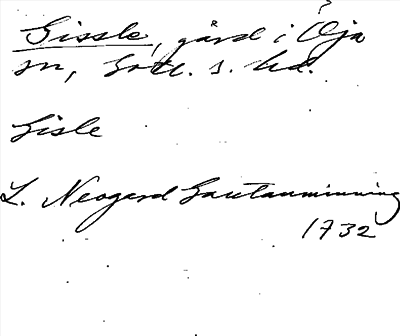 Gissle, gård i Öja
sn, Gotl. s. hd.
Gisle
L. Neogard Gautauminning
1732